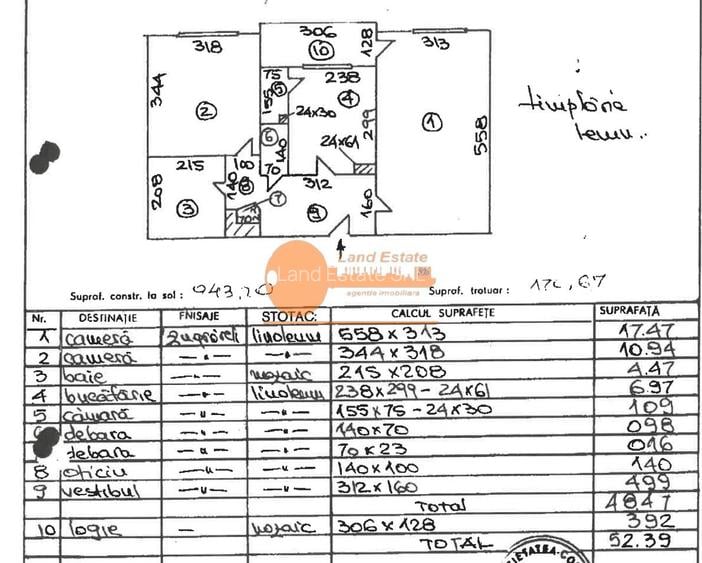 306
318
10
128
313
344
75
5
155
238
4
24x30
2
1
558
299
6
24x61
140
tîmplărie
lemn..
215
100
70
312
208
3
140
8
7
9
160
Land Estate
Land Estate SRL
agentie imobiliara
Supraf. constr. la sol : 943,20
Supraf. trotuar :
Nr. DESTINAȚIE FNISAJE STOTAC: CALCUL SUPRAFEȚE SUPRAFAȚĂ
1 cameră zugrăveli linoleum 558 x 313 17.47
2 cameră —"— —"— 344 x 318 10.94
3 baie —"— mozaic 215 x 208 4.47
4 bucătărie —"— linoleum 238 x 299 - 24 x 61 6.97
5 cămară —"— —"— 155 x 75 - 24 x 30 109
debara —"— —"— 140 x 70 098
debara —"— —"— 70 x 23 016
8 oficiu —"— —"— 140 x 100 140
9 vestibul —"— —"— 312 x 160 499
Total 4847
10 logie — mozaic 306 x 128 392
TOTAL 52.39